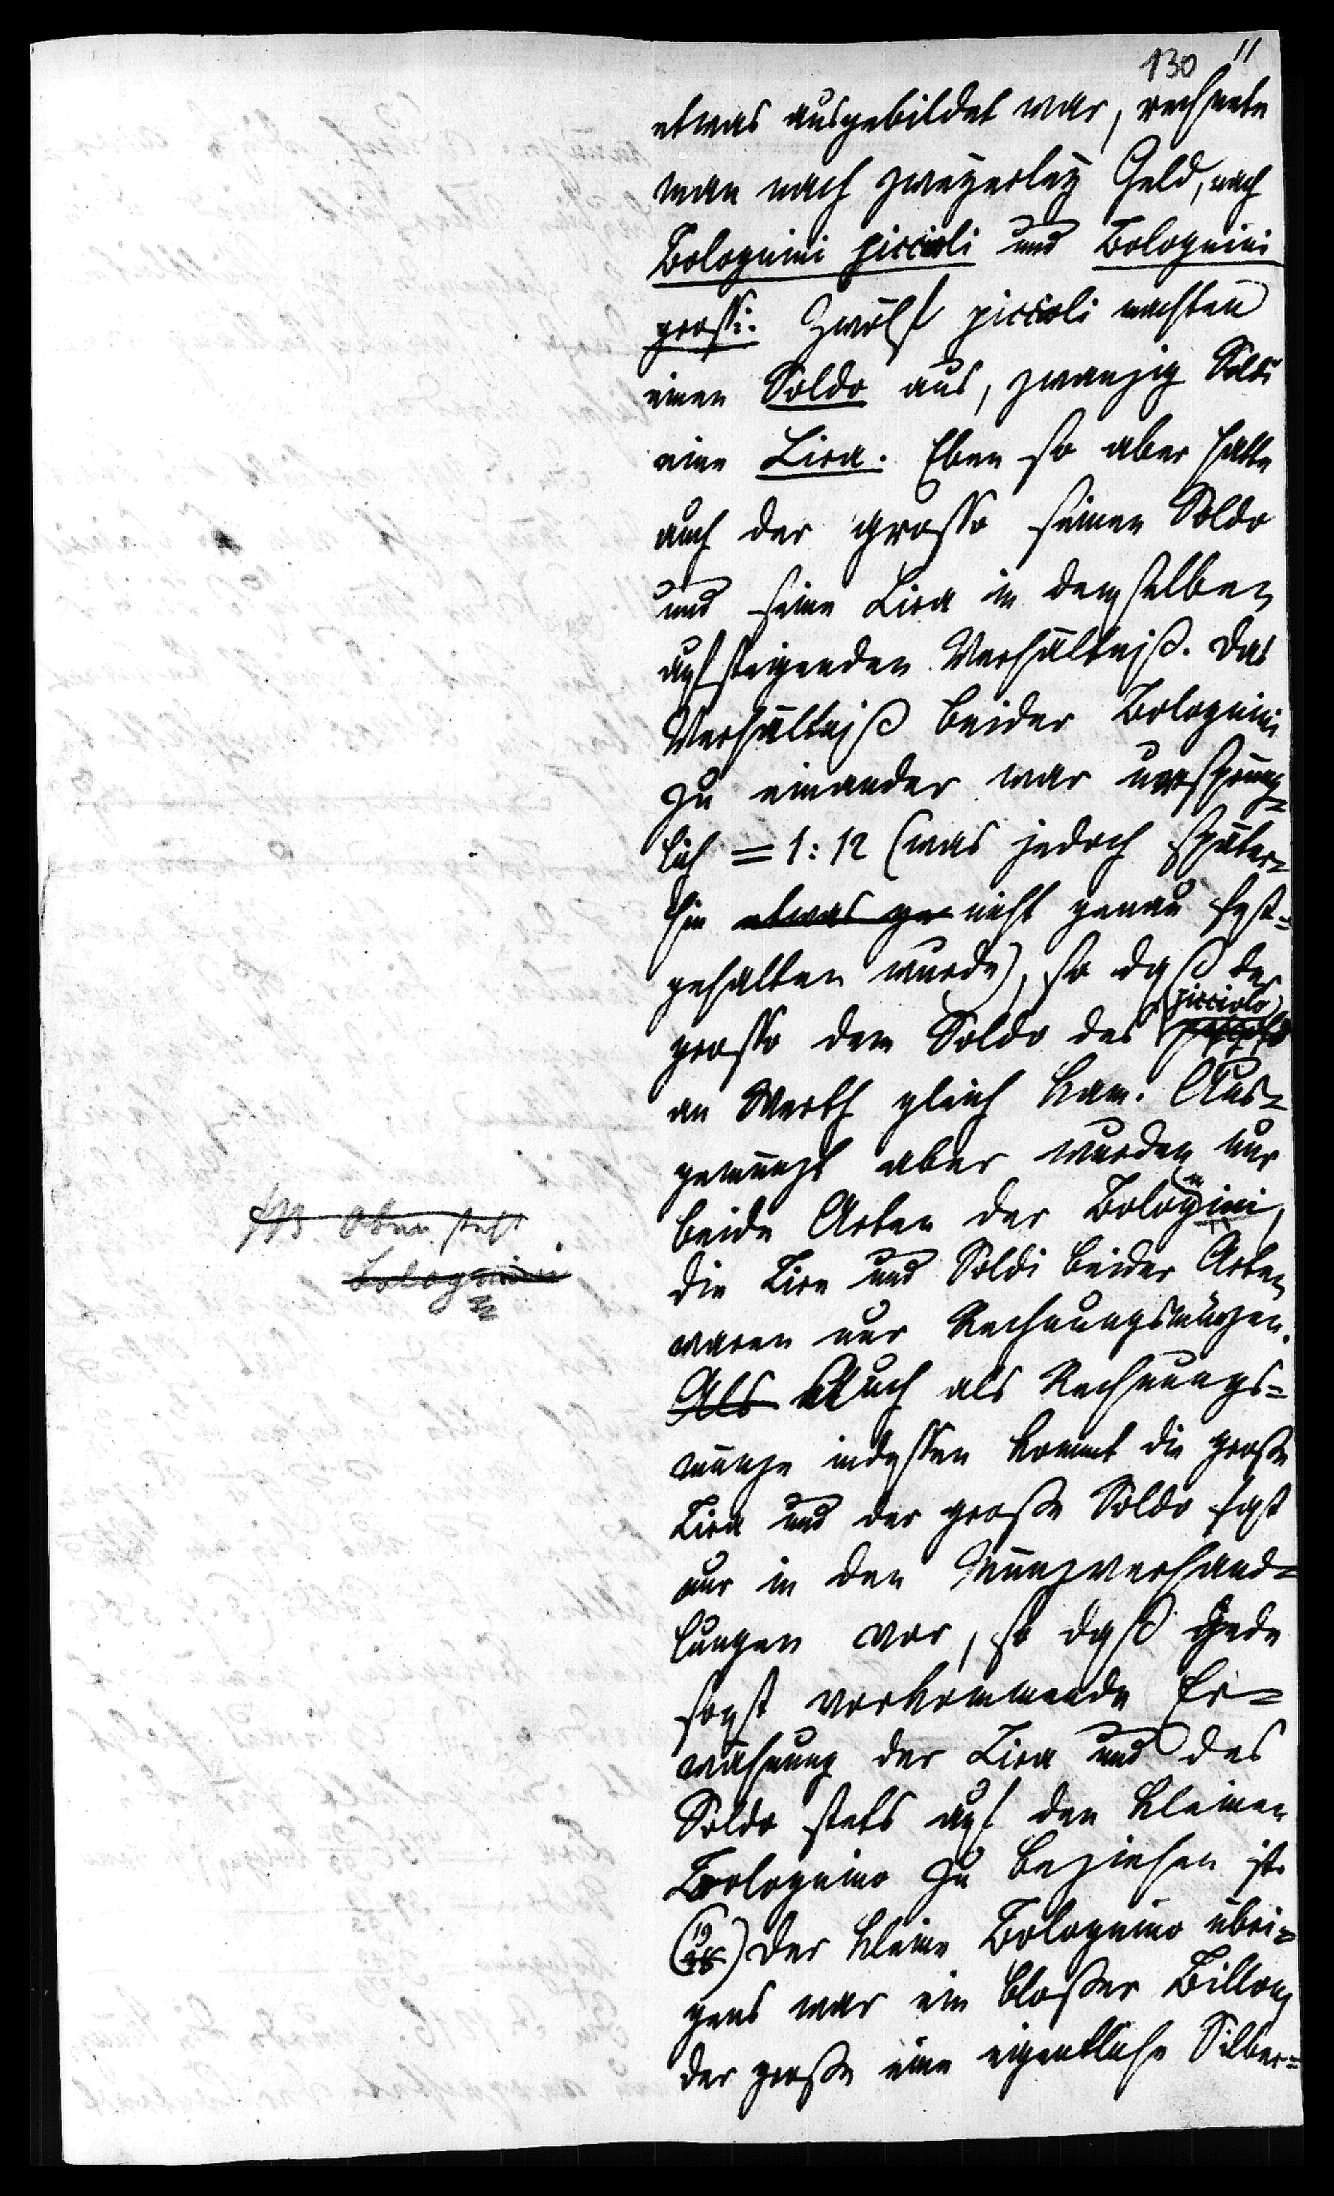 130 11
etwas ausgebildet war, rechnete
man nach zweyerley Geld, nach
Bolognini piccioli und Bolognini
grossi. Zwölf piccioli machten
einen Soldo aus, zwanzig Soldi
eine Lira. Eben so aber hatte
auch der grosso seinen Soldo
und seine Lira in demselben
aufsteigenden Verhältniß. Das
Verhältniß beider Bolognini
zu einander war ursprüng=
lich = 1:12 (was jedoch später=
hin etwas ge nicht genau fest=
gehalten wurde), so daß der
picciolo
grosso dem Soldo des
an Werth gleich kam. Aus=
gemünzt aber wurden nur
beide Arten der Bolognini,
die Lire und Soldi beider Arten
waren nur Rechnungsmünzen.
Als Auch als Rechnungs=
münze indessen kommt die große
Lira und der große Soldo fast
nur in den Münzverhand=
lungen vor, so daß jede
sonst vorkommende Er=
wähnung der Lira und des
Soldo stets auf den kleinen
Bolognino zu beziehen ist.
(19) Der kleine Bolognino übri=
gens war ein bloßer Billon,
der große eine eigentliche Silber=
oben steht
Bolognini